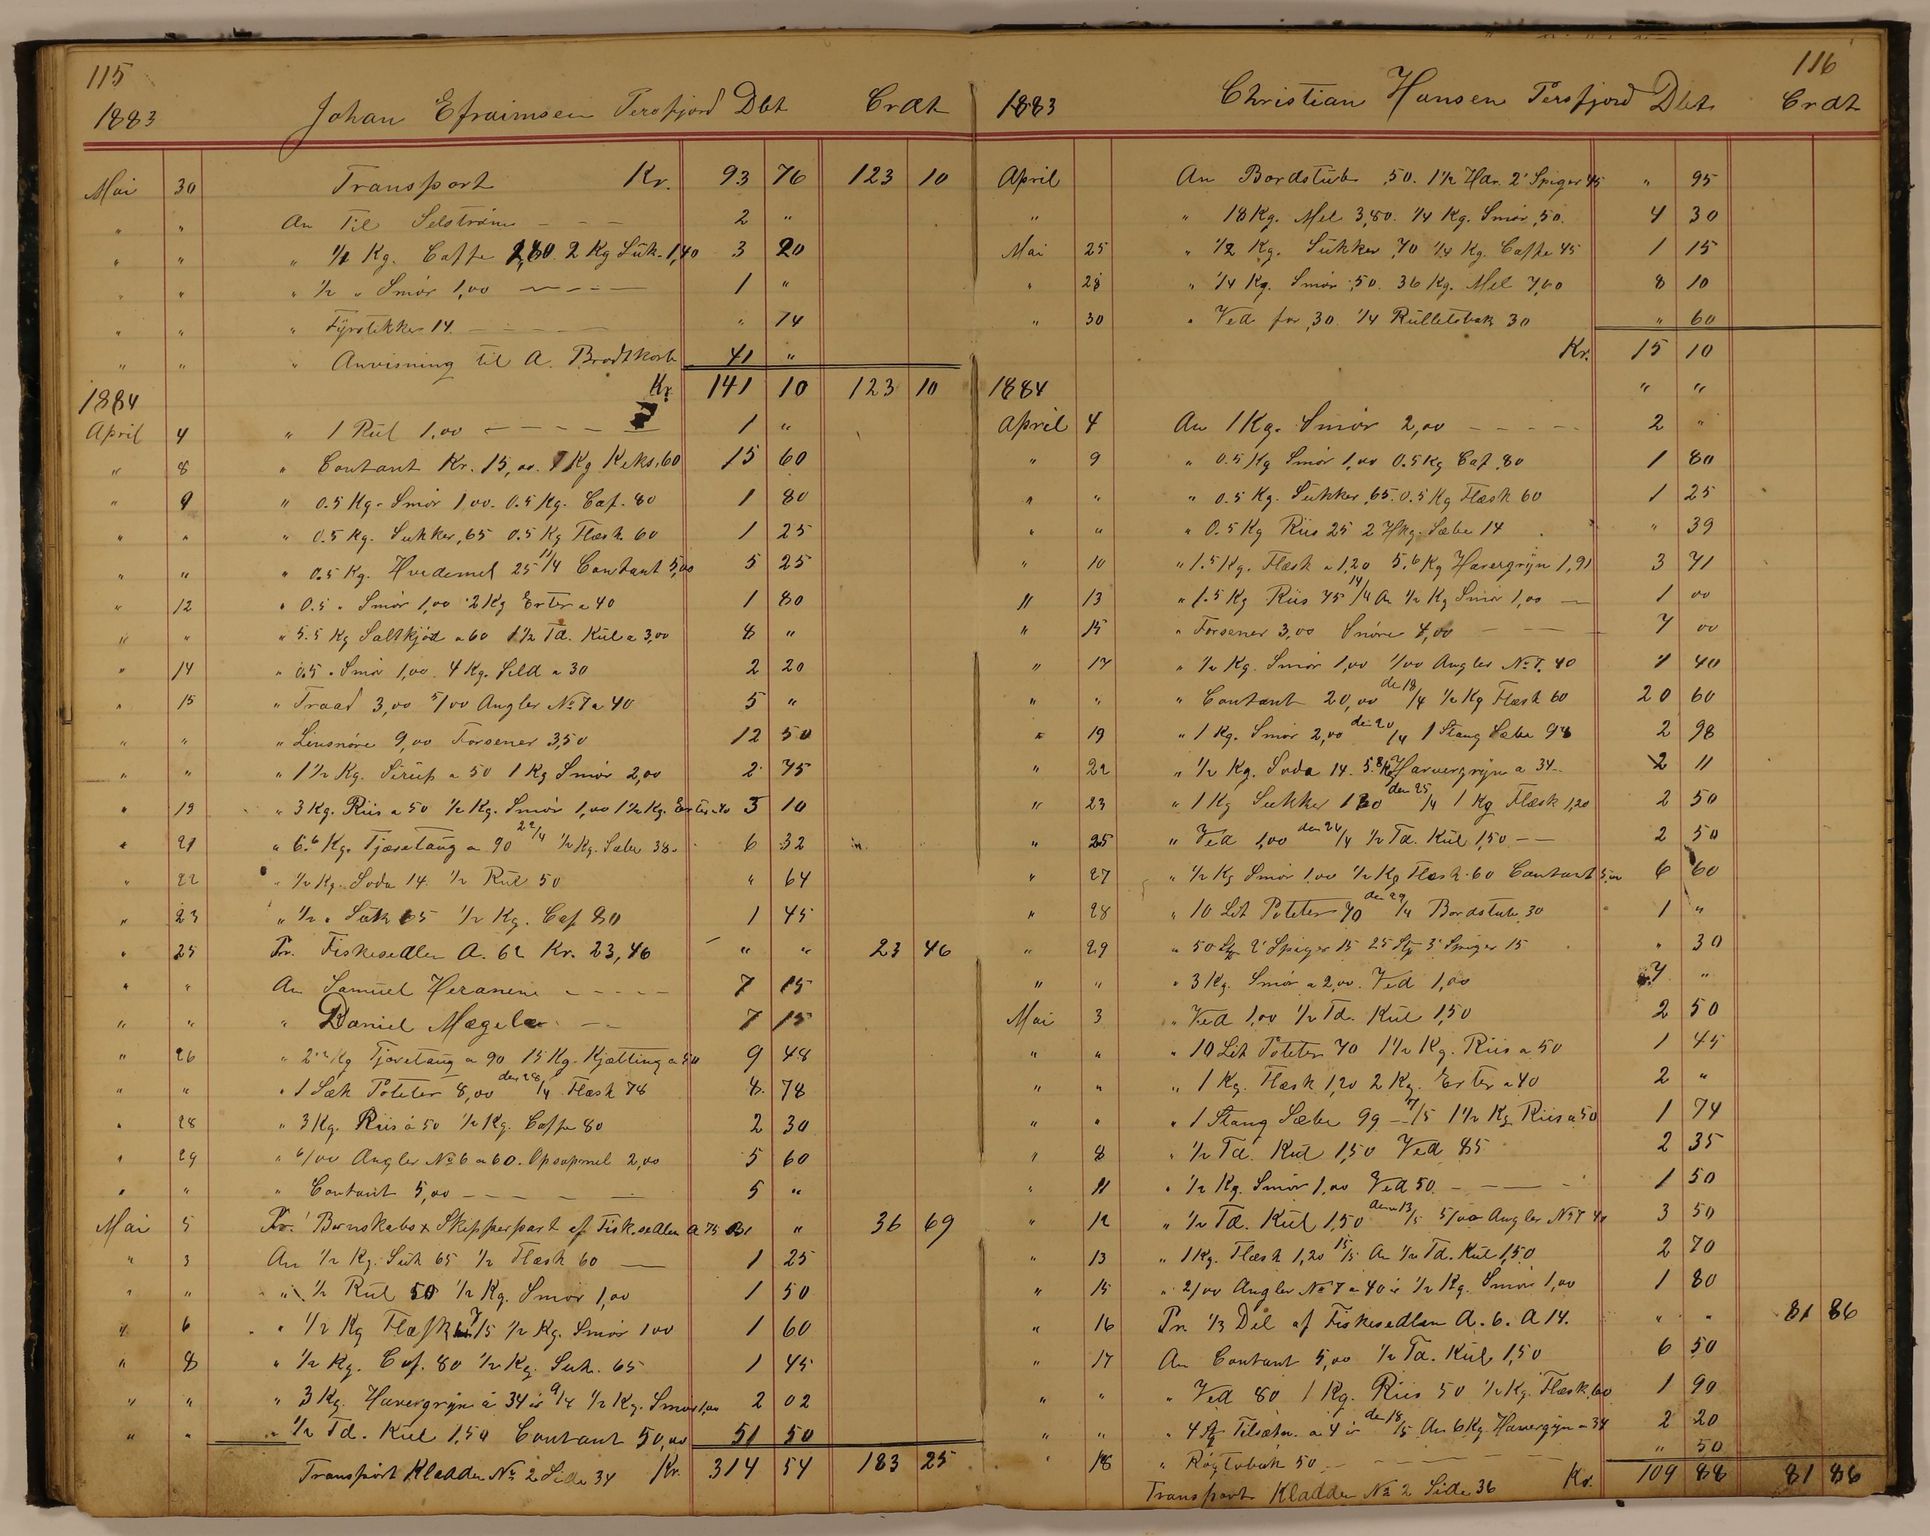 115
1883 Johan Efraimsen Tersfjord Dbt Crdt
Mai 30 Transport Kr. 93 76 123 10
" " An Til Selstrøm - - - 2 "
" " " 1/1 Kg. Caffe 1,80. 2 Kg Suk. 1,40 3 20
" " " 1/2 " Smør 1,00 - - - - 1 "
" " " Fyrstikker 14. - - - " 14
" " " Anvisning til A. Brodtkorb 41 "
Kr. 141 10 123 10
1884
April 4 " 1 Rul 1,00 - - - - - 1 "
" 8 " Contant Kr. 15,00. 1 Kg Keks. 60 15 60
" 9 " 0.5 Kg. Smør 1,00. 0.5 Kg. Caf. 80 1 80
" " " 0.5 Kg. Sukker, 65 0.5 Kg Flæsk 60 1 25
" " " 0.5 Kg. Hvedemel 25 11/4 Contant 5,00 5 25
" 12 " 0.5 " Smør 1,00 2 Kg Erter a 40 1 80
" " " 5.5 Kg Saltkjød a 60 1 1/2 Td. Kul a 3,00 8 "
" 14 " 0.5 " Smør 1,00. 4 Kg. Sild a 30 2 20
" 15 " Traad 3,00 5/00 Angler No 7 a 40 5 "
" " " Linsnøre 9,00 Forsener 3,50 12 50
" " " 1 1/2 Kg. Sirup a 50 1 Kg Smør 2,00 2 75
" 19 " 3 Kg. Riis a 50 1/2 Kg. Smør 1,00 1 1/2 Kg. Erter a 40 3 10
" 21 " 6.6 Kg. Tjæretaug a 90 22/4 1/2 Kg. Sæbe 38. 6 32
" 22 " 1/2 Kg. Soda 14. 1/2 Rul 50 " 64
" 23 " 1/2 " Suk 65 1/2 Kg. Caf 80 1 45
" 25 Pr. Fiskesedlen A. 62 Kr. 23,46 " " 23 46
" " An Samuel - - - - 7 15
" " " Daniel - - 7 15
" 26 " 2.2 Kg Tjæretaug a 90 15 Kg. Kjætting a 50 9 48
" " " 1 Sæk Poteter 8,00 den 28/4 Flæsk 78 8. 78
" 28 " 3 Kg. Riis á 50 1/2 Kg. Caffe 80 2 30
" 29 " 6/00 Angler No 6 a 60. 2,00 5 60
" " " Contant 5,00 - - - - - 5 "
Mai 5 Pr. Skipperpart af Fiskesedlen A 75 " 36 69
" 3 An 1/2 Kg. Suk 65 1/2 Flæsk 60 - 1 25
" " " 1/2 Rul 50 1/2 Kg. Smør 1,00 1 50
" 6 " 1/2 Kg Flæsk 7/5 1/2 Kg. Smør 1 00 1 60
" 8 " 1/2 Kg. Caf. 80 1/2 Kg. Suk. 65 1 45
" " " 3 Kg. Havergryn á 34 ør 9/5 1/2 Kg. Smør 1,00 2 02
" " " 1/2 Td. Kul 1,50 Contant 50,00 51 50
Transport Kladden No 2 Side 34 Kr. 314 54 183 25
116
1883 Christian Hansen Tersfjord Dbt Crdt
April An Bordstub 50. 1 1/2 Hdr. 2" Spiger 45 " 95
" " 18 Kg. Mel 3,80. 1/4 Kg. Smør, 50. 4 30
Mai 25 " 1/2 Kg. Sukker 70 1/4 Kg. Caffe 45 1 15
" 28 " 1/4 Kg. Smør 50. 36 Kg. Mel 7,60 8 10
" 30 " Ved for 30. 1/4 Rulletobak 30 " 60
Kr. 15 10
1884 " "
April 4 An 1 Kg. Smør 2,00 - - - - - 2 "
" 9 " 0.5 Kg Smør 1,00 0.5 Kg Caf. 80 1 80
" " " 0.5 Kg. Sukker, 65. 0.5 Kg Flæsk 60 1 25
" " " 0.5 Kg Riis 25 2 Hkg. Sæbe 14 " 39
" 10 " 1.5 Kg. Flæsk a 1,20 5.6 Kg Havergryn 1,91 3 71
" 13 " 1.5 Kg Riis 75 14/4 An 1/2 Kg Smør 1,00 - 1 00
" 15 " Forsener 3,00 Snøre 4,00 - - - 7 00
" 17 " 1/2 Kg. Smør 1,00 1/00 Angler No 7. 40 1 40
" " " Contant 20,00 de 18/4 1/2 Kg Flæsk 60 20 60
" 19 " 1 Kg. Smør 2,00 den 20/4 1 Stang Sæbe 98 2 98
" 22 " 1/2 Kg. Soda 14. 5.8 Kg Havergryn a 34. 2 11
" 23 " 1 Kg Sukker 1 30 den 25/4 1 Kg Flæsk 1,20 2 50
" 25 " Ved 1,00 den 26/4 1/2 Td. Kul 1,50 - - 2 50
" 27 " 1/2 Kg Smør 1,00 1/2 Kg Flæsk 60 Contant 5,00 6 60
" 28 " 10 Lit Poteter 70 den 29/4 Bordstub 30 1 "
" 29 " 50 Stk 2" Spiger 15 25 Stk 3" Spiger 15 " 30
" " " 3 Kg. Smør a 2,00. Ved 1,00 7 "
Mai 3 " Ved 1,00 1/2 Td. Kul 1,50 2 50
" " " 10 Lit Poteter 70 1 1/2 Kg. Riis a 50 1 45
" " " 1 Kg. Flæsk 1,20 2 Kg. Erter a 40 2 "
" " " 1 Stang Sæbe 99 - 7/5 1 1/2 Kg Riis a 50 1 74
" 8 " 1/2 Td. Kul 1,50 Ved 85 2 35
" 11 " 1/2 Kg. Smør 1,00 Ved 50. - - - 1 50
" 12 " 1/2 Td. Kul 1,50 den 13/5 5/00 Angler No 7 40 3 50
" 13 " 1 Kg. Flæsk 1,20 15/5 An 1/2 Td. Kul 1,50 2 70
" 15 " 2/00 Angler No 7 a 40 ør 1/2 Kg. Smør 1,00 1 80
" 16 Pr. 1/3 Del af Fiskesedlen A. 6. A 14. " " 81 86
" 17 An Contant 5,00 1/2 Td. Kul 1,50 6 50
" " " Ved 80 1 Kg. Riis 50 1/2 Kg. Flæsk, 60 1 90
" " " 4 Stk a 4 ør den 18/5 An 6 Kg Havergryn a 34 2 20
" 18 " Røgtobak 50. - - - - - " 50
Transport Kladden No 2 Side 36 Kr. 109 88 81 86